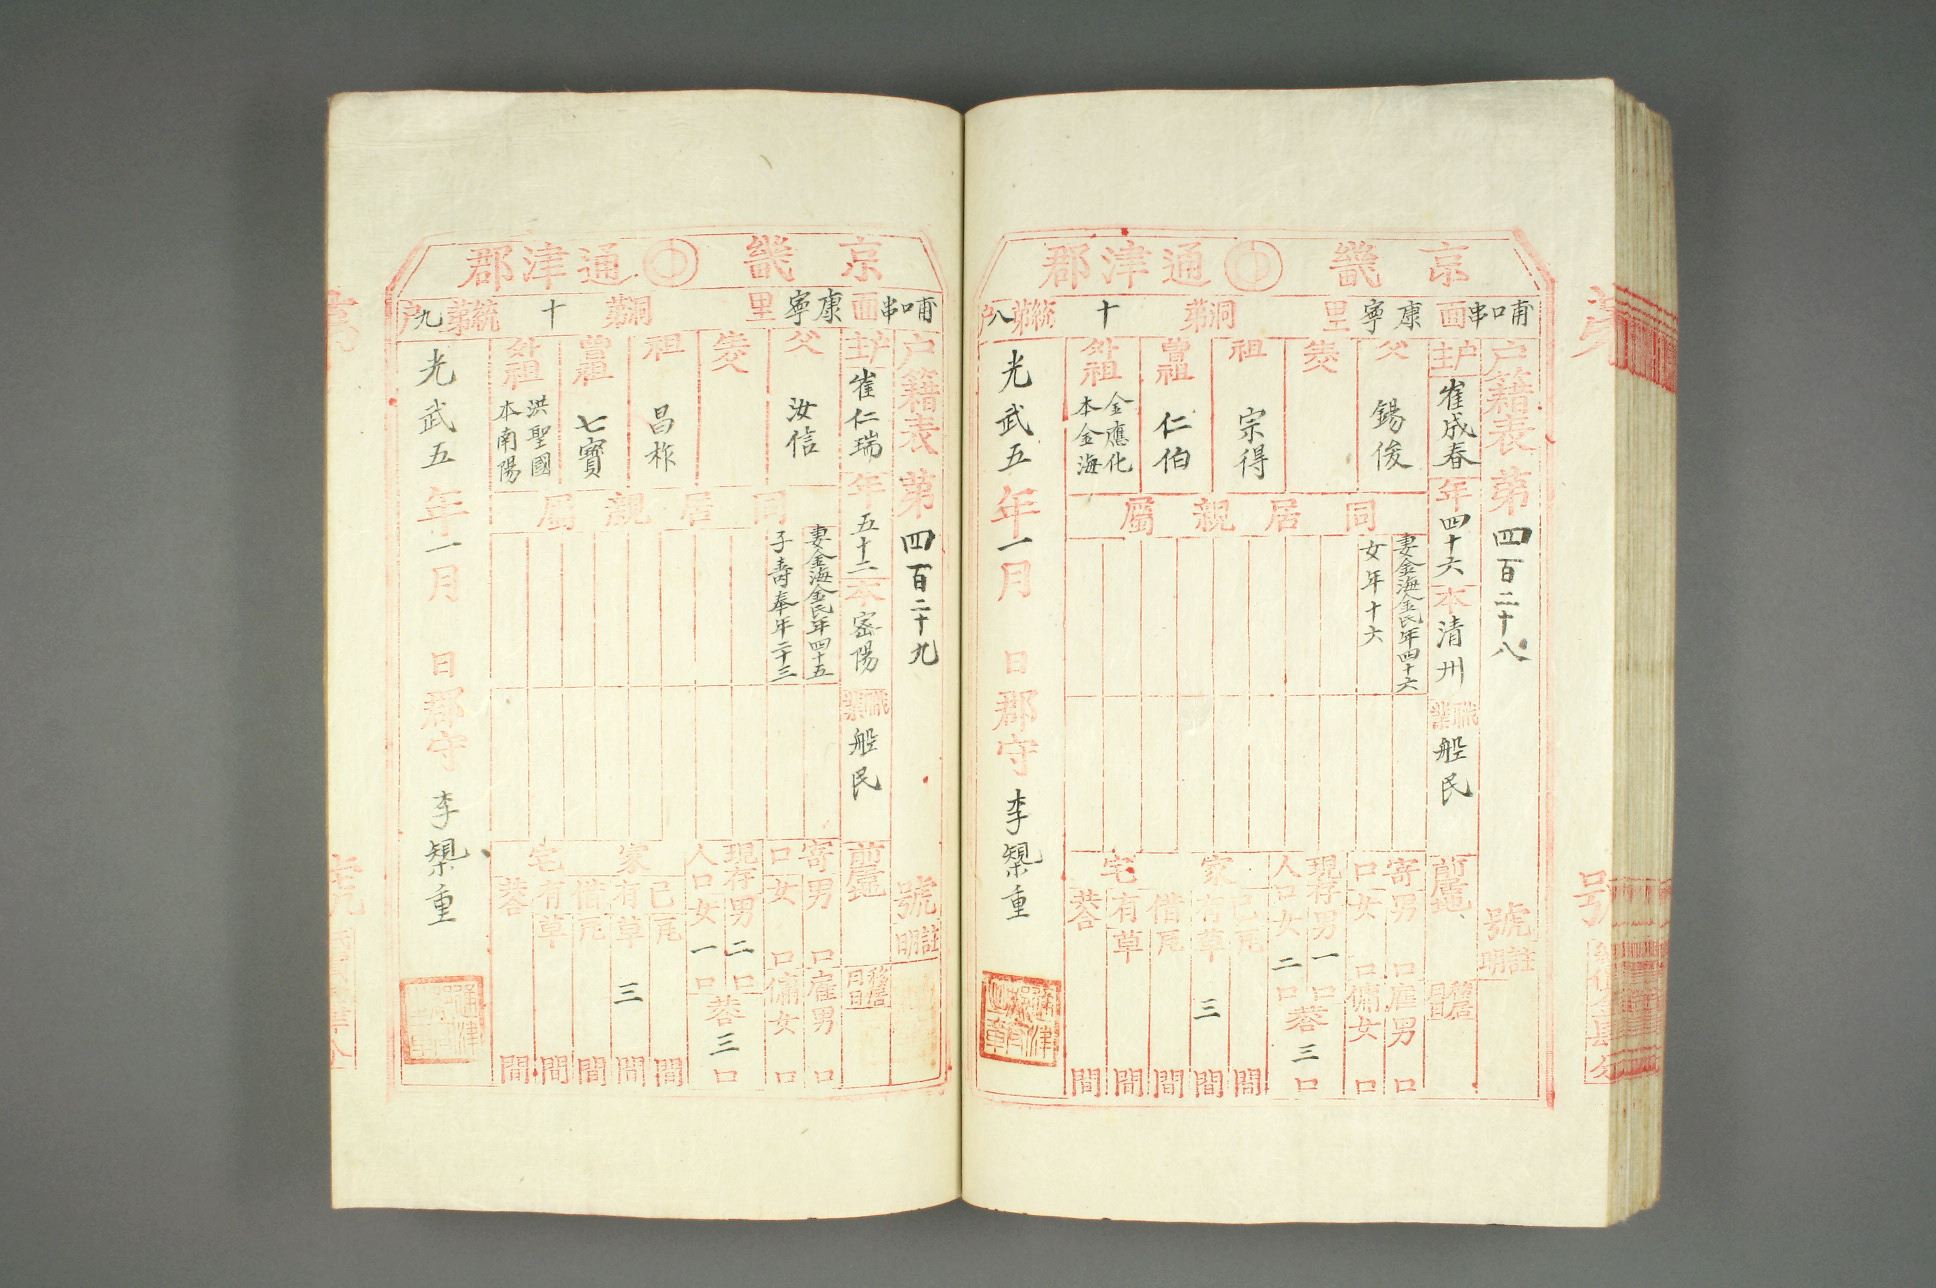 京畿 通津郡
哺口串面 康寧里 洞第十統第八户
户籍表第四百二十八號
註明
户主 崔成春 年四十六 本清州 職業 船民 前居地
移居月日
父 錫俊
生父
祖 宗得
曾祖 仁伯
外祖 金應化
本金海
同居親屬
妻金海金氏年四十六
女年十六
寄口 男 口 女 口
雇男 口 傭女 口
現存人口 男一口 女二口 共三口
家宅
己有 瓦 間
草 三 間
借有 瓦 間
草 間
共 間
光武五年一月 日 郡守 李 重
京畿 通津郡
哺口串面 康寧里 洞第十統第九户
户籍表第四百二十九號
註明
户主 崔仁瑞 年五十二 本密陽 職業 船民 前居地
移居月日
父 汝信
生父
祖 昌祚
曾祖 七寶
外祖 洪聖國
本南陽
同居親屬
妻金海金氏年四十五
子壽奉年二十三
寄口 男 口 女 口
雇男 口 傭女 口
現存人口 男二口 女一口 共三口
家宅
己有 瓦 間
草 三 間
借有 瓦 間
草 間
共 間
光武五年一月 日 郡守 李 重